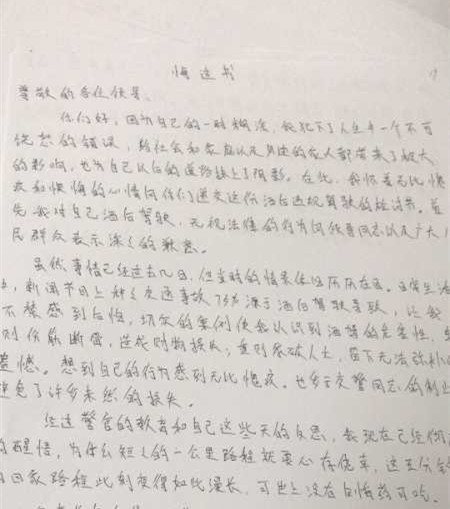 悔过书
尊敬的各位领导、
你们好，因为自己的一时糊涂，我犯下了人生中一个不可
饶恕的错误，给社会和家庭以及身边的家人都带来了极大
的影响，也为自己以后的道路抹上了阴影。在此，我怀着无比愧
疚和懊悔的心情向你们递交这份酒后违规驾驶的检讨书。首
先我对自己酒后驾驶，无视法律的行为向领导同志以及广大人
民群众表示深深的歉意。
虽然事情已经过去几日，但当时的情景依旧历历在目。日常生活
，新闻节目上种种交通事故75%源于酒后驾驶导致，让我
不禁感到后怕，切实的案例使我认识到酒驾的危害性，
则伤筋断骨，造成财物损失；重则家破人亡，留下无法弥补的
遗憾。想到自己的行为感到无比愧疚。也多亏交警同志的制止
避免了许多未然的损失。
经过警官的教育和自己这些天的反思，我现在已经
醒悟，为什么短短的一公里路程就要心存侥幸，这五分钟
回家路程此刻变得如此漫长，可世上没有后悔药可吃。